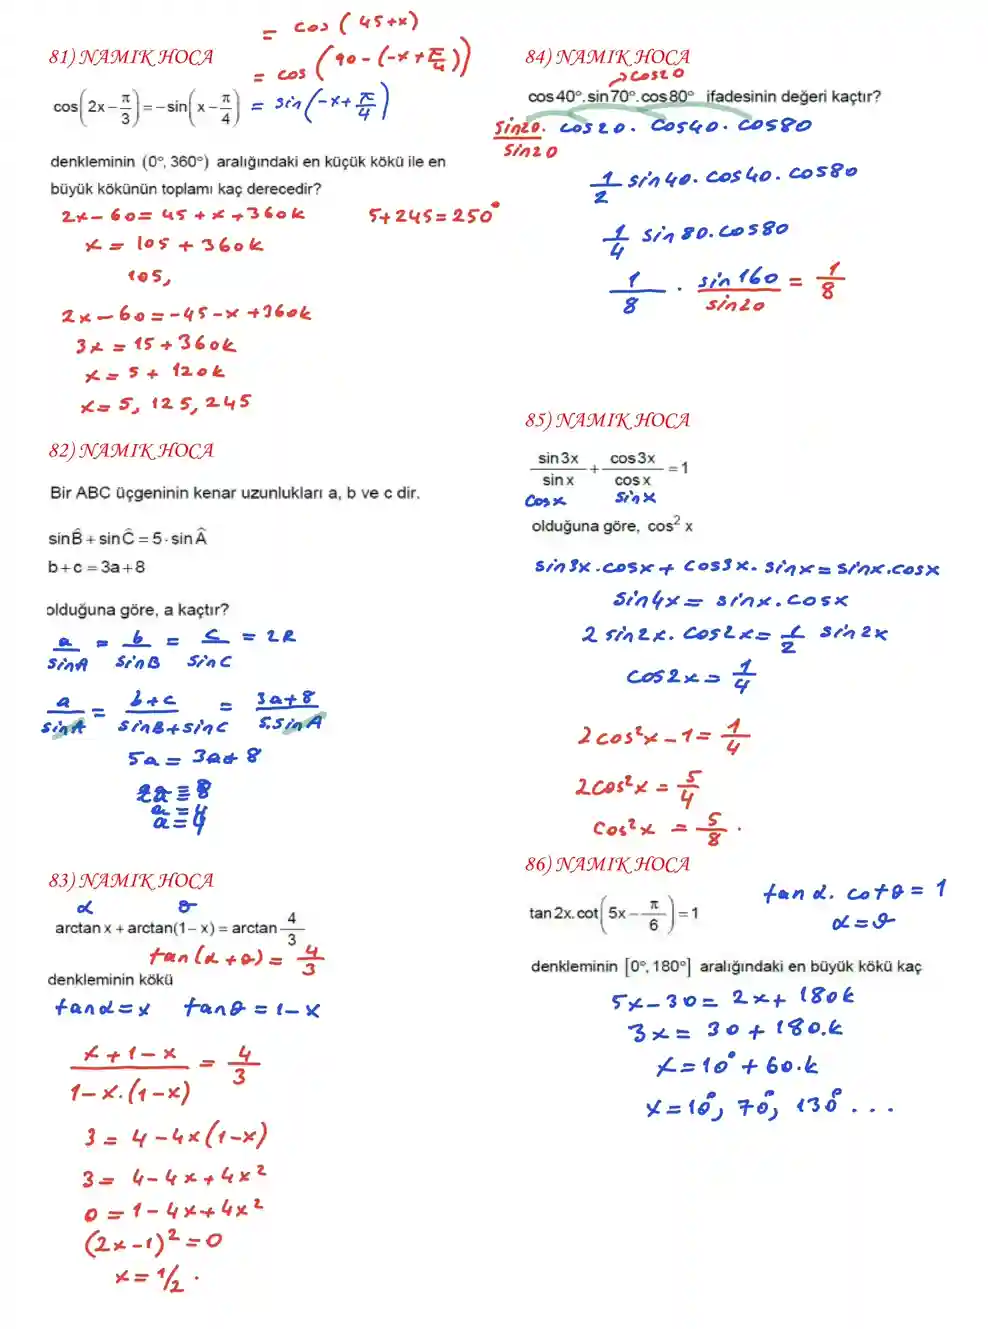 81) NAMIK HOCA
= cos(45+x)
= cos(90-(-x+π/4))
cos(2x-π/3)=-sin(x-π/4) = sin(-x+π/4)
denkleminin (0°, 360°) aralığındaki en küçük kökü ile en
büyük kökünün toplamı kaç derecedir?
2x-60=45+x+360k
5+245=250°
x=105+360k
105,
2x-60=-45-x+360k
3x=15+360k
x=5+120k
x=5, 125, 245
82) NAMIK HOCA
Bir ABC üçgeninin kenar uzunlukları a, b ve c dir.
sinB̂+sinĈ=5·sinÂ
b+c=3a+8
olduğuna göre, a kaçtır?
a/sinA = b/sinB = c/sinC = 2R
a/sinA = b+c/sinB+sinC = 3a+8/5.sinA
5a=3a+8
2a=8
a=4
a=4
83) NAMIK HOCA
α θ
arctanx+arctan(1-x)=arctan 4/3
tan(α+θ)=4/3
denkleminin kökü
tanα=x tanθ=1-x
x+1-x/1-x.(1-x) = 4/3
3=4-4x(1-x)
3=4-4x+4x²
0=1-4x+4x²
(2x-1)²=0
x=1/2.
84) NAMIK HOCA
cos20
cos40°.sin70°.cos80° ifadesinin değeri kaçtır?
sin20/sin20 . cos20. cos40. cos80
1/2 sin40. cos40. cos80
1/4 sin80. cos80
1/8 . sin160/sin20 = 1/8
85) NAMIK HOCA
sin3x/sinx + cos3x/cosx = 1
cosx sinx
olduğuna göre, cos² x
sin3x.cosx+cos3x.sinx=sinx.cosx
sin4x=sinx.cosx
2sin2x.cos2x=1/2 sin2x
cos2x=1/4
2cos²x-1=1/4
2cos²x=5/4
cos²x=5/8.
86) NAMIK HOCA
tan2x.cot(5x-π/6)=1
tanα.cotθ=1
α=θ
denkleminin [0°,180°] aralığındaki en büyük kökü kaç
5x-30=2x+180k
3x=30+180.k
x=10°+60.k
x=10°, 70°, 130° ...